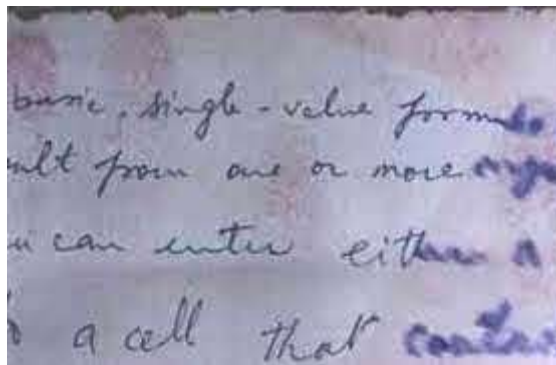 basic, single-value formula
ult from one or more
u can enter either a
a cell that